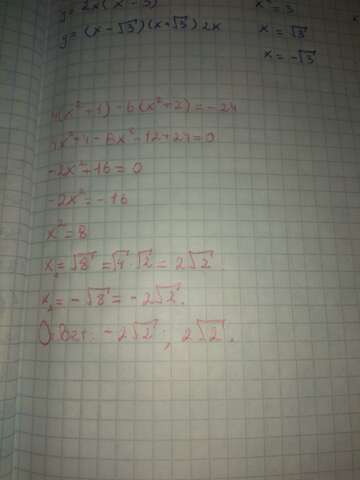 y = 2x(x² - 3)
y = (x - √3)(x + √3) 2x
x² = 3
x = √3
x = -√3
4(x² + 1) - 6(x² + 2) = -24
4x² + 4 - 6x² - 12 + 24 = 0
-2x² + 16 = 0
-2x² = -16
x² = 8
x₁ = √8 = √4 · √2 = 2√2.
x₂ = -√8 = -2√2.
Ответ: -2√2; 2√2.